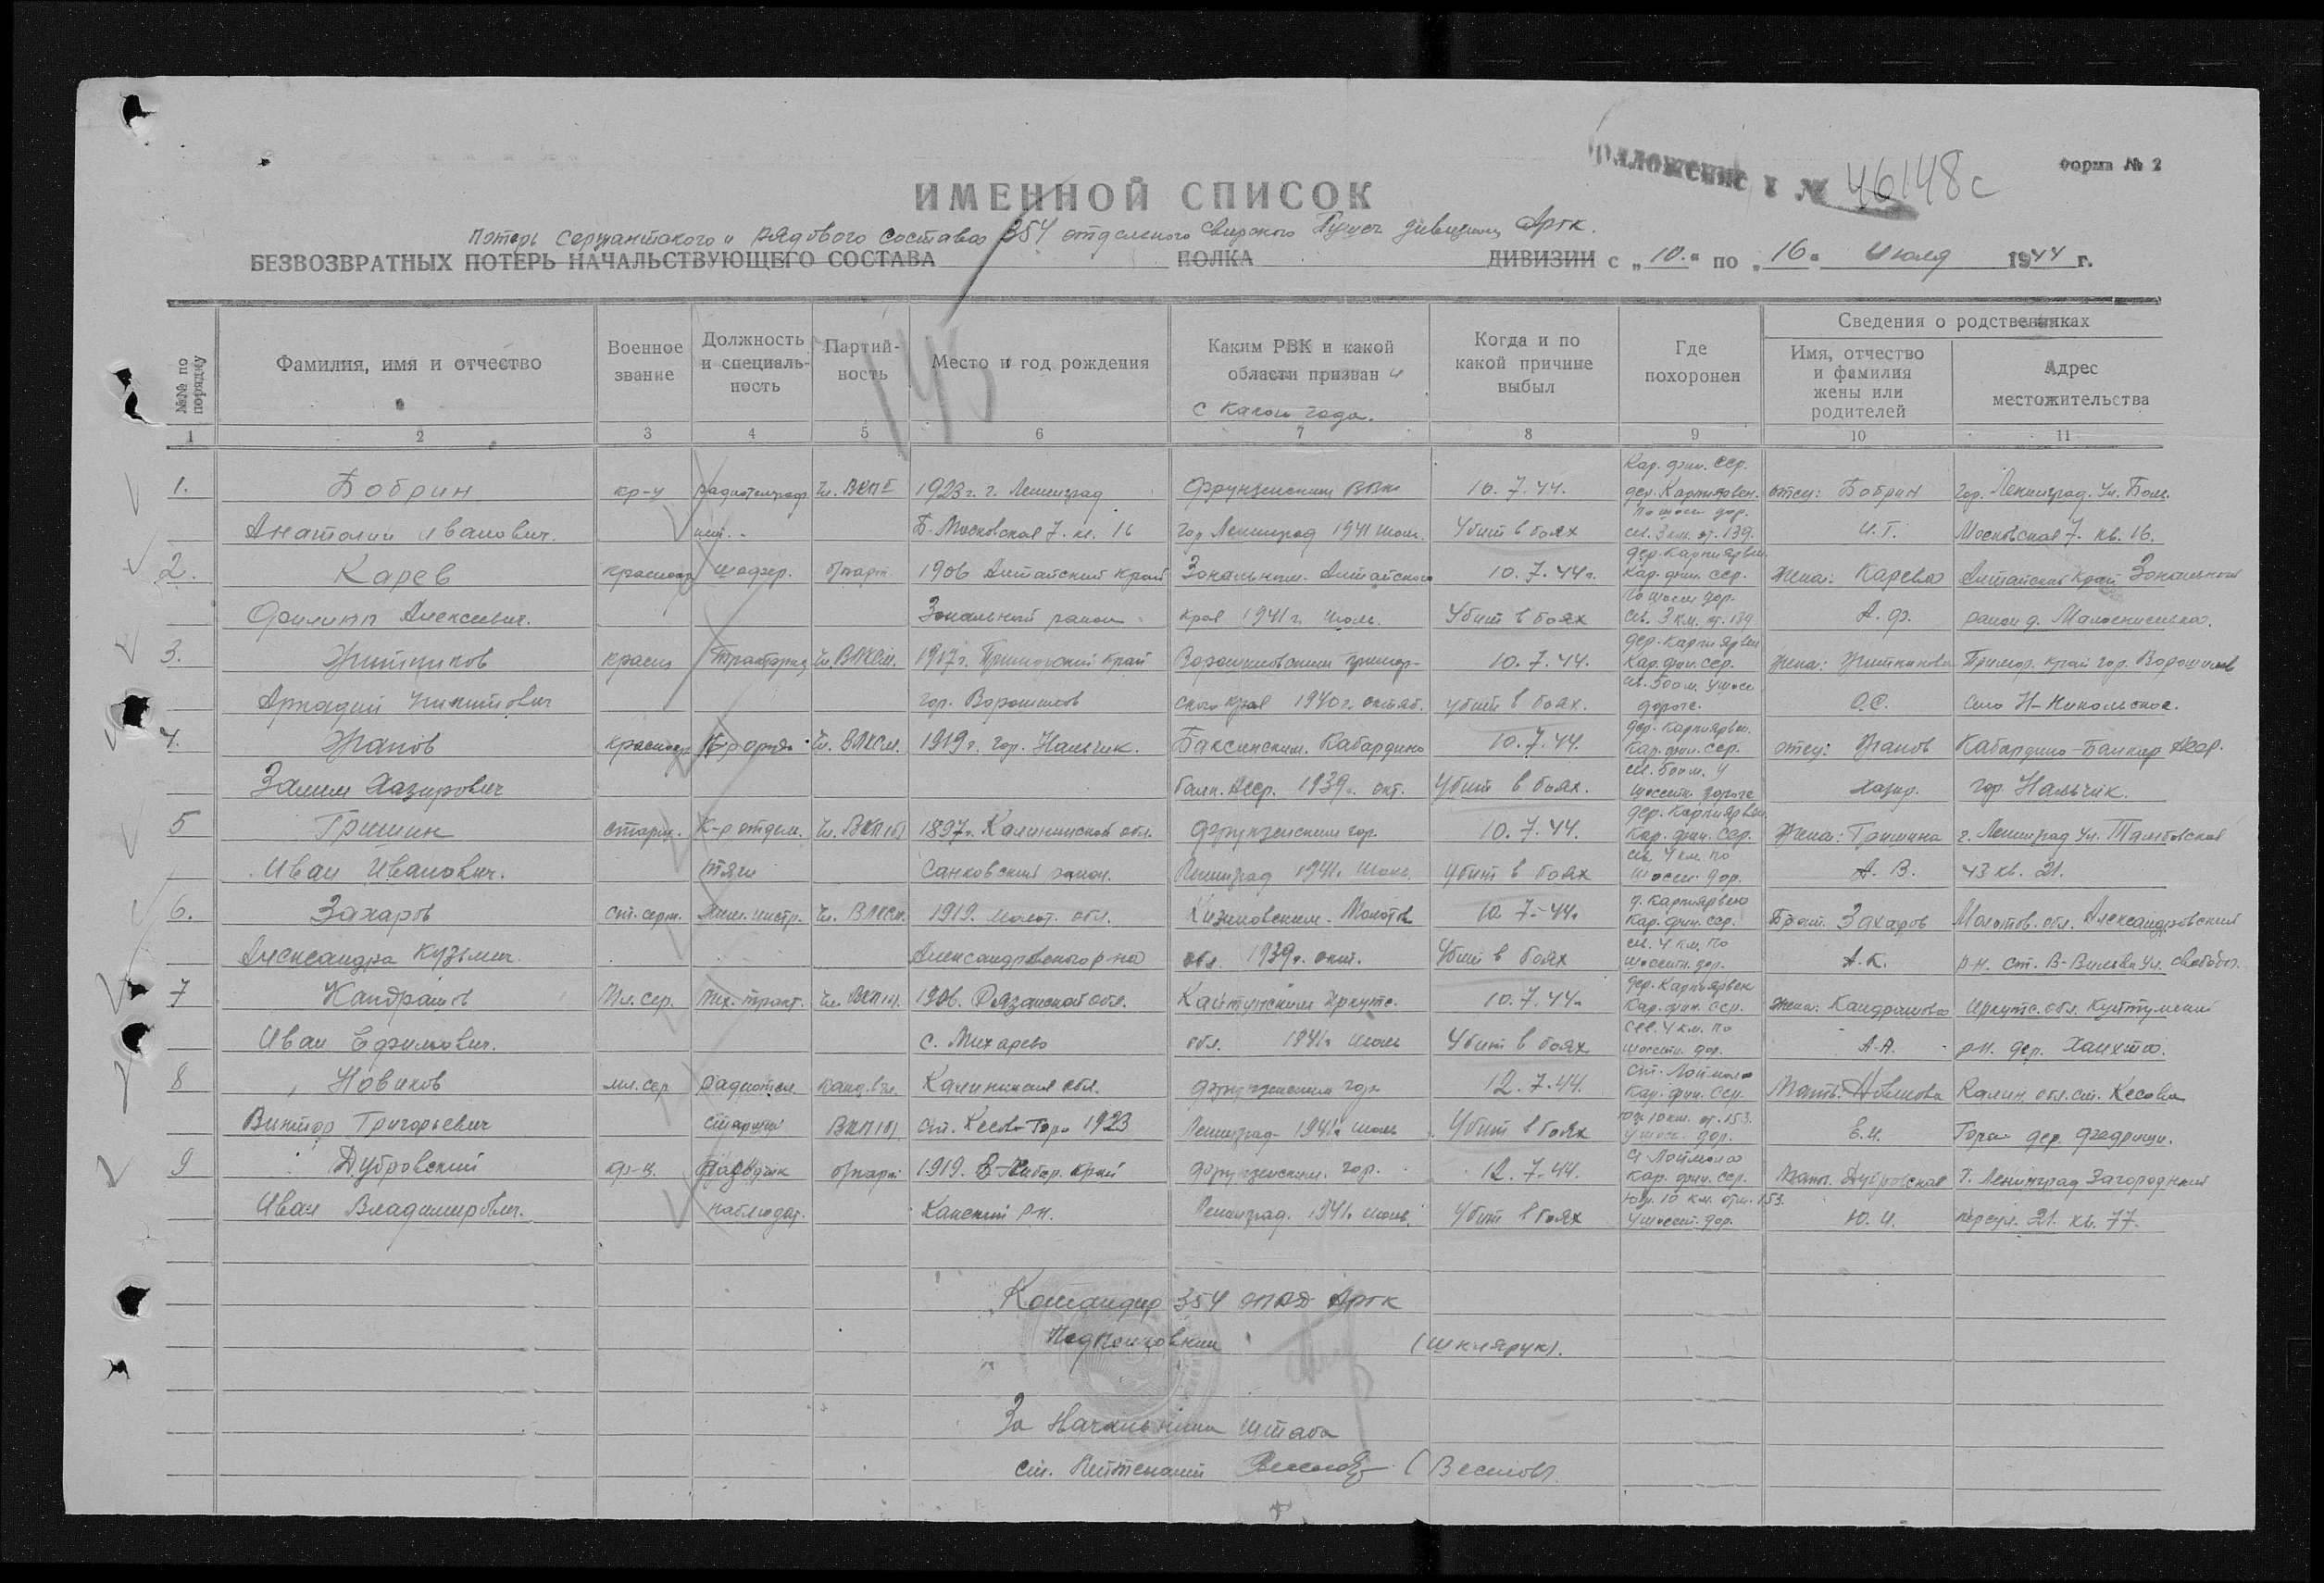 Приложение к № 46148с
Форма № 2
ИМЕННОЙ СПИСОК
потерь сержантского и рядового состава 354 отдельного Свирского Пушеч дивизиона Аргк.
БЕЗВОЗВРАТНЫХ ПОТЕРЬ НАЧАЛЬСТВУЮЩЕГО СОСТАВА ПОЛКА ДИВИЗИИ с „10." по „16" Июля 1944 г.
145
№№ по порядку
Фамилия, имя и отчество
Военное звание
Должность и специальность
Партийность
Место и год рождения
Каким РВК и какой области призван и с какого года.
Когда и по какой причине выбыл
Где похоронен
Сведения о родственниках
Имя, отчество и фамилия жены или родителей
Адрес местожительства
1 2 3 4 5 6 7 8 9 10 11
Кар. фин. сср.
1. Бобрин кр-ц радиотелеграф Чл. ВКП 1923 г. г. Ленинград Фрунзенским РВК 10.7.44. дер. Карпиярвен. отец: Бобрин Гор. Ленинград. Ул. Бол.
по шоссе дор.
Анатолий Иванович. Б. Московская 7. кв. 16 гор. Ленинград 1941 июль. Убит в боях св. 3 км. от. 139. И.Г. Московская 7. кв. 16.
дер. Карпиярвен.
2. Карев красноар шофер. б/парт. 1906 Алтайский край Зональным. Алтайского 10.7.44г. Кар. фин. сср. жена: Карева Алтайский край Зональный
по шоссе дор.
Филипп Алексеевич. Зональный район. края 1941 г. июль. Убит в боях св. 3 км. от. 139 А.Ф. район д.
дер. Карпиярвен
3. Житников красн Тракторист Чл. ВЛКСМ. 1917 г. Приморский край Ворошиловским Примор- 10.7.44. Кар. фин. сср. жена: Житникова Примор. край гор. Ворошилов
св. 500 м. у шосс
Аркадий Никитович гор. Ворошилов ского края 1940 г. октяб. убит в боях. дороге. О.С. село Н-Никольское.
дер. Карпиярвен.
4. Жанов красноар Чл. ВЛКСМ. 1919 г. гор. Нальчик. Баксинским. Кабардино 10.7.44. Кар. фин. сср. отец: Жанов Кабардино-Балкар Асср.
св. 500 м. у
Залим Хазирович балк. Асср. 1939 г. окт. Убит в боях. шоссейн. дороге Хазир. гор. Нальчик.
дер. Карпиярвен
5 Гришин старш. К-р отдел. Чл. ВКП(б) 1897 г. Калининской обл. Фрунзенским гор. 10.7.44. Кар. фин. сср. Жена: Гришина г. Ленинград ул. Тамбовская
св. 4 км. по
Иван Иванович. тяги Санковский район. Ленинград 1941 г. июль. Убит в боях шоссей. дор. А.В. 43 кв. 21.
д. Карпиярвен
6. Захаров ст. серж. Чл. ВЛКСМ. 1919. Молот. обл. Кизиловским. Молотов 10.7.44г Кар. фин. сср. Брат. Захаров Молотов. обл. Александровский
св. 4 км. по
Александр Кузьмич. Александровского р-на обл. 1939 г. окт. Убит в боях шоссейн. дор. А.К. р-н. ст. В-Вильва ул. Свободы.
дер. Карпиярвен
7 Кандрашов Мл. сер. Мех. тракт. Чл. ВКП(б). 1906. Рязанской обл. Куйтунским Иркутс. 10.7.44г Кар. фин. сср. Жена: Кандрашова Иркутс. обл. Куйтунский
св. 4 км. по
Иван Ефимович. с. Михарево обл. 1941 г. июль Убит в боях шоссейн. дор. А.А. р-н. дер.
ст. Лоймола
8 Новиков мл. сер радиотел. канд. в чл. Калининская обл. Фрунзенским гор. 12.7.44. Кар. фин. сср. Мать. Новикова Калин. обл. ст. Кесова
Юв. 10 км. от. 153.
Виктор Григорьевич старший ВКП(б). ст. Кесова Гора 1923 Ленинград 1941 г. июль Убит в боях у шосс. дор. Е.И. Гора дер.
ст Лоймола
9 Дубровский кр-ц. б/парт 1919. Кап. край Фрунзенским. гор. 12.7.44. Кар. фин. сср. Мать. Дубровская г. Ленинград Загородный
Юв. 10 км. отм. 153.
Иван Владимирович. наблюдат. Канский р-н. Ленинград. 1941 г. июль. Убит в боях у шоссейн. дор. Ю.И. переул. 21. кв. 77.
Командир 354 ОПАД Аргк
Подполковник (Шклярук).
За Начальника штаба
ст. Лейтенант (Веселов).